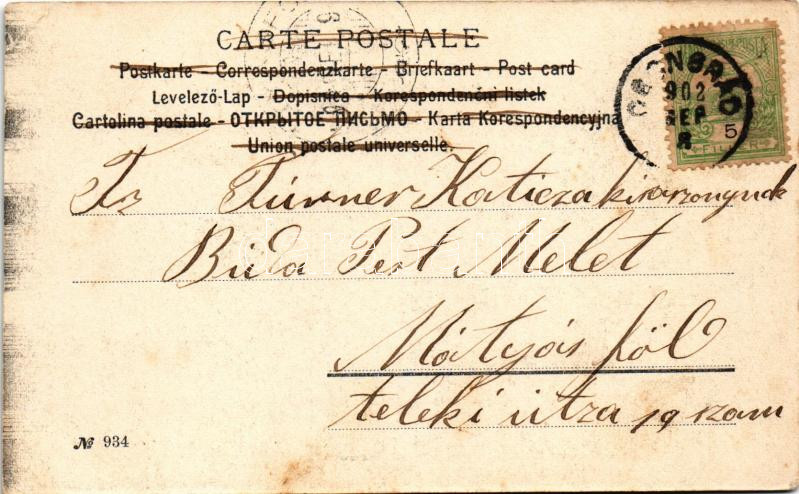 CARTE POSTALE
Postkarte - Correspondenzkarte - Briefkaart - Post card
Levelező-Lap - Dopisnica - Korespondenční listek
Cartolina postale - ОТКРЫТОЕ ПИСЬМО - Karta Korespondencyjna
Union postale universelle.
CSONGRÁD
902
SEP
8
5
FILLÉR
Tz Túrner Katicza kisasszonynak
Buda Pest Melet
Mátyás föl
teleki utza 19 szam
№ 934